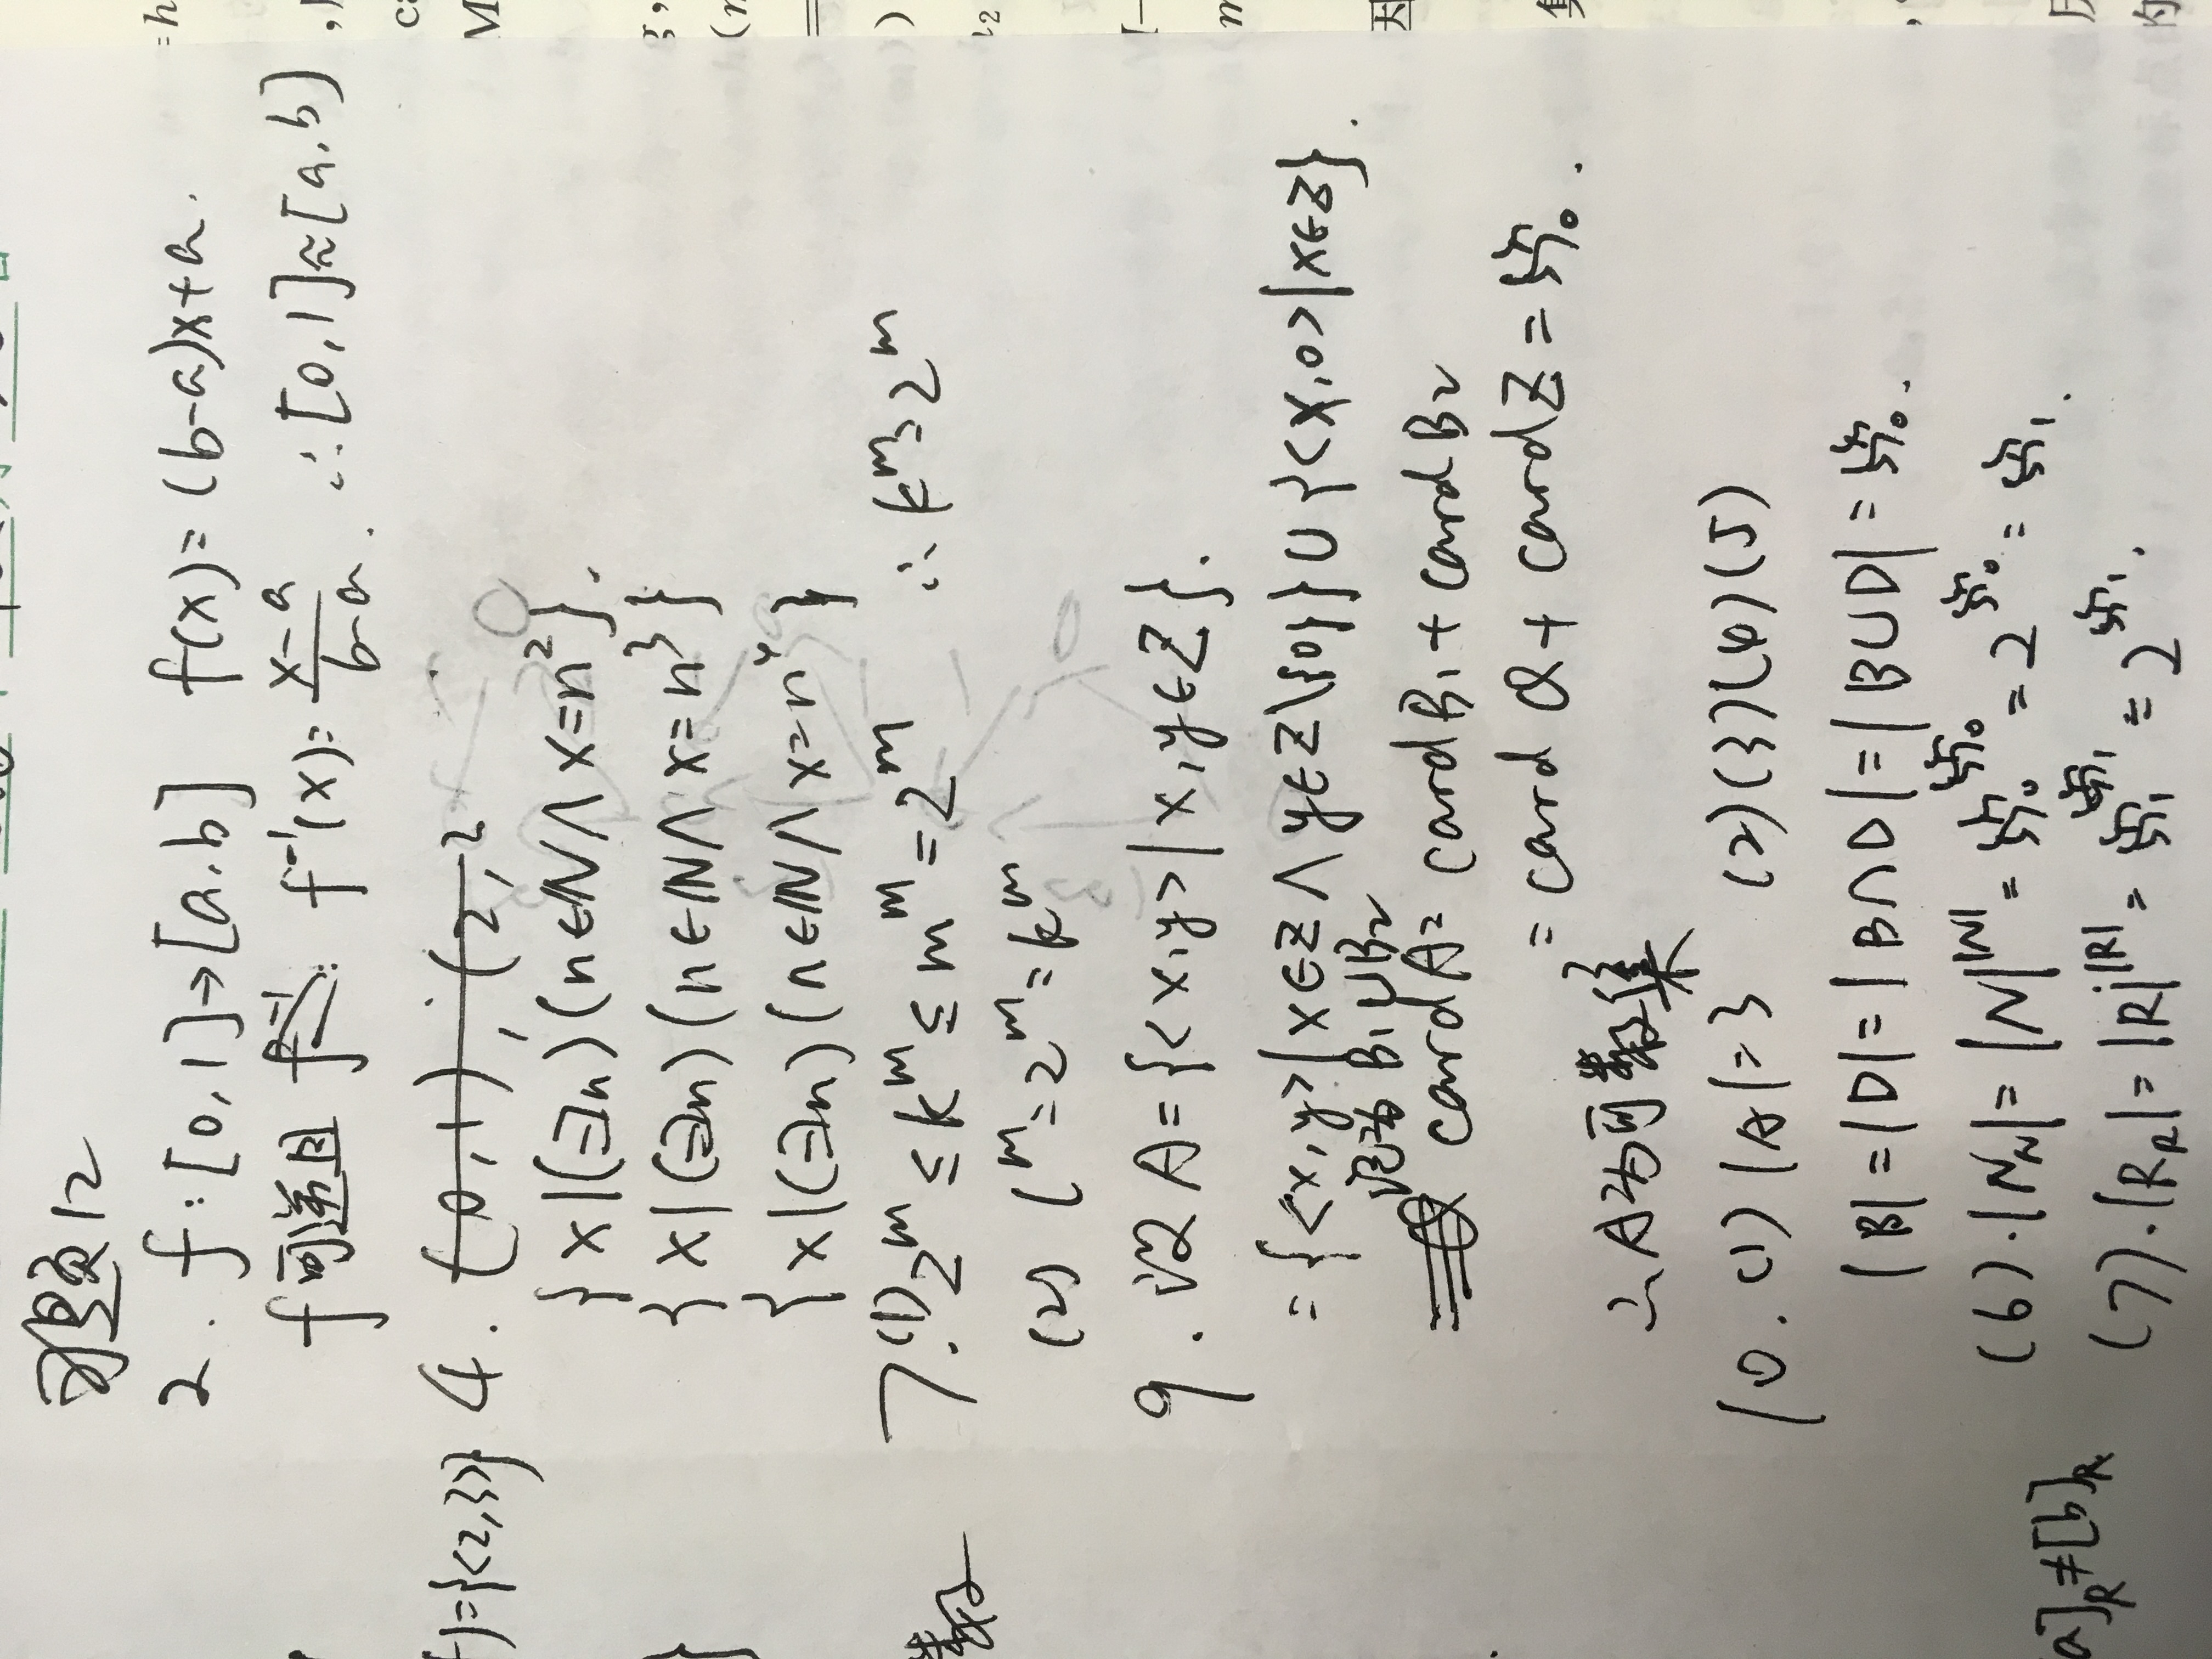 习题12
2. f:[0,1]→[a,b] f(x)=(b-a)x+a.
f可逆且 f⁻¹(x)=(x-a)/(b-a). ∴[0,1]≈[a,b]
4. (0,1),(2,2
{x|(∃n)(n∈N∧x=n²}.
{x|(∃n)(n∈N∧x=n³}
{x|(∃n)(n∈N∧x=n⁴}
7.(1) 2^m ≤ k^m ≤ m^m = 2^m ∴ k^m=2^m
(2) l^m=2^m=k^m
9. 设A={<x,y>|x,y∈Z}.
={<x,y>|x∈Z∧y∈Z\{0}}∪{<x,0>|x∈Z}.
记为 B₁∪B₂
cardA=cardB₁+cardB₂
=card Q+cardZ=ℵ₀.
∴A为可数集
10.(1)|A|=3 (2)(3)(4)(5)
|B|=|D|=|B∩D|=|B∪D|=ℵ₀.
(6).|N_N|=|N|^|N|=ℵ₀^ℵ₀=2^ℵ₀=ℵ₁.
(7).|R_R|=|R|^|R|=ℵ₁^ℵ₁=2^ℵ₁.
)={<2,3>}
}
数
[a]_R≠[b]_R
=h
M
g,
(n
=
)
m
因
集
的